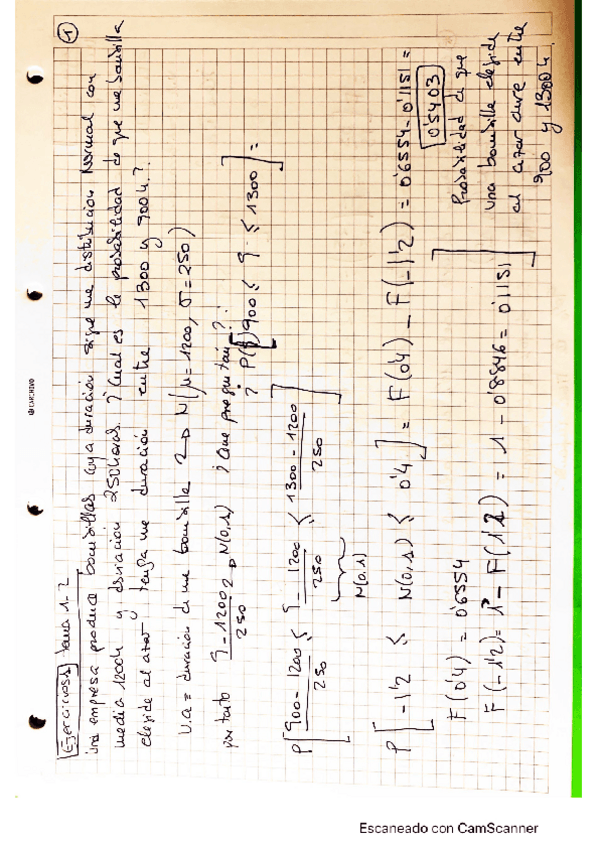 Ejercicios Tema 1-2
①
Una empresa produce bombillas cuya duración sigue una distribución Normal con
media 1200h y desviación 250 horas. ¿Cual es la probabilidad de que una bombilla
elegida al azar tenga una duración entre 1300 y 900h?
V.a = duración de una bombilla → N(μ=1200, σ=250)
por tanto (ξ - 1200)/250 → N(0,1) ¿Que preguntan?
P[900 ≤ ξ ≤ 1300] =
P[(900-1200)/250 ≤ (ξ - 1200)/250 ≤ (1300-1200)/250]
N(0,1)
P[-1'2 ≤ N(0,1) ≤ 0'4] = F(0'4) - F(-1'2) = 0'6554 - 0'1151 =
0'5403
F(0'4) = 0'6554
F(-1'2) = 1 - F(1'2) = 1 - 0'8846 = 0'1151
Probabilidad de que
una bombilla elegida
al azar dure entre
900 y 1300h.
Escaneado con CamScanner